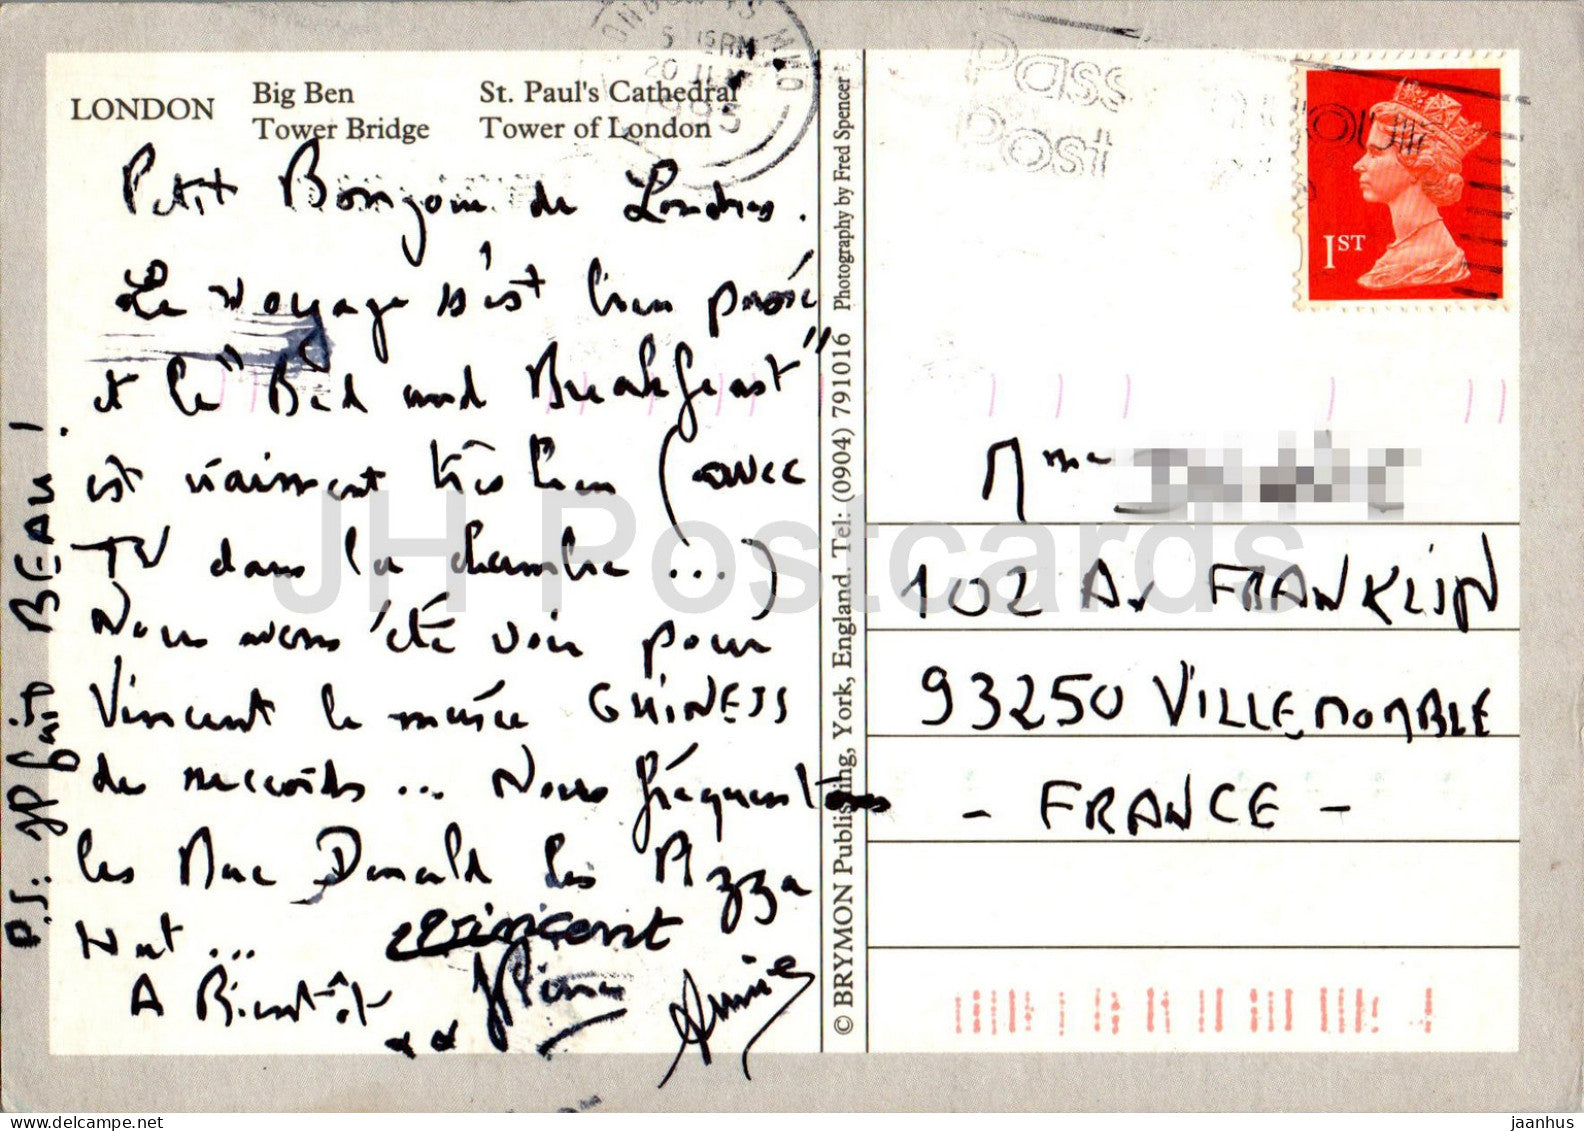 LONDON
Big Ben
Tower Bridge
St. Paul's Cathedral
Tower of London
Petit Bonjour de Londres.
Le voyage s'est bien passé
et le "Bed and Breakfeast"
est vraiment très bien (avec
TV dans la chambre ...)
Nous avons été voir pour
Vincent le musée GUINESS
des records ... Nous fréquentons
les Mac Donald les Pizza
Hut ...
A Bientôt
Vincent
JPierre
Annie
P.S.: Il fait BEAU !
© BRYMON Publishing, York, England. Tel: (0904) 791016 Photography by Fred Spencer
Pass
Post
1ST
Mme
102 Av FRANKLIN
93250 VILLEMOMBLE
- FRANCE -
JH Postcards
delcampe.net
jaanhus